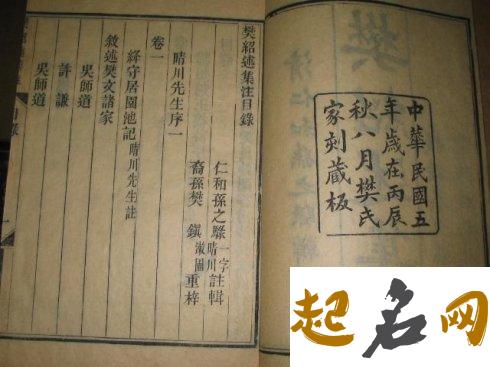 中華民國五
年歲在丙辰
秋八月樊氏
家刻藏板
樊紹述集注目錄
仁和孫之騄一字晴川註輯
裔孫樊鎮漱圃重梓
晴川先生序一
卷一
絳守居園池記晴川先生註
敘述樊文諸家
吳師道
許謙
吳師道
起名网